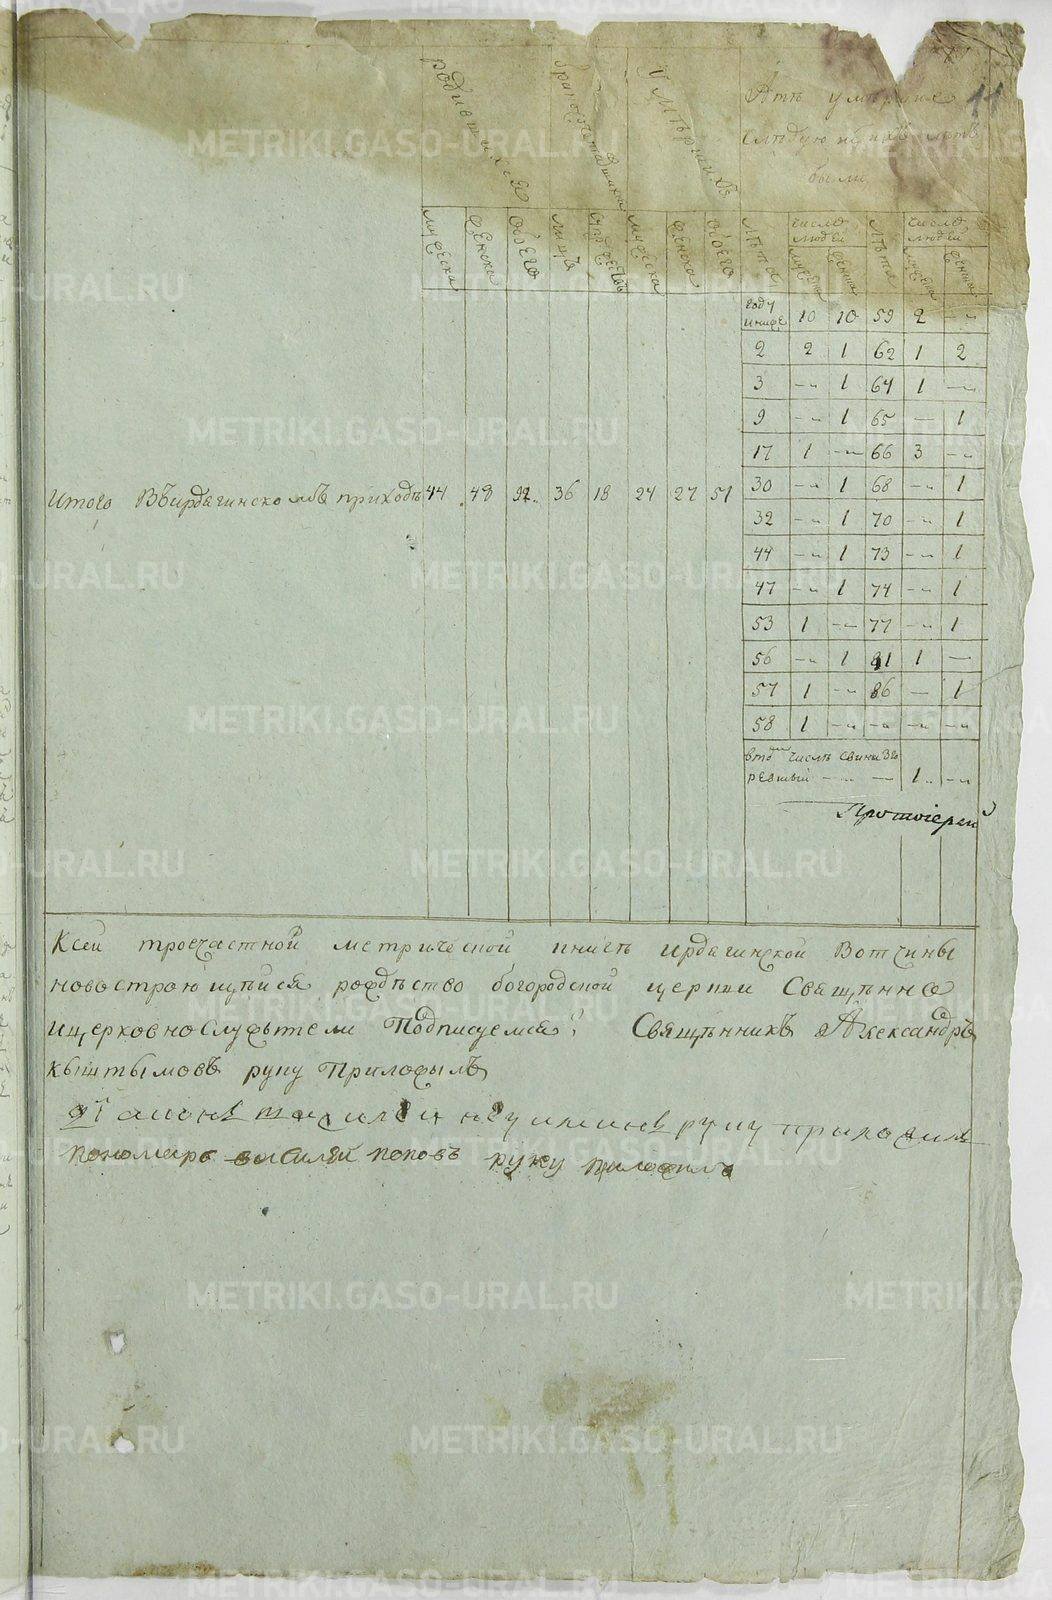 11
родившихся
бракосочетавшихся
Умершихъ
Аже умершие
следующихъ летъ
были
мужеска
женска
обоего
лицъ
супружествъ
мужеска
женска
обоего
лета
число людей
мужеска
женска
лета
число людей
мужеска
женска
году и ниже 10 10 59 2
2 2 1 62 1 2
3 — 1 64 1 —
9 — 1 65 — 1
17 1 — 66 3 —
Итого Въ Ирдагинскомъ приходѣ 44 48 92 36 18 24 27 51
30 — 1 68 — 1
32 — 1 70 — 1
44 — 1 73 — 1
47 — 1 74 — 1
53 1 — 77 — 1
56 — 1 81 1 —
57 1 — 86 — 1
58 1 — — — —
в том числѣ
1
Протоiерей
К сей троечастной метрической книгѣ Ирдагинской Вотчины
новостроющейся рождество богородской церкви Священно
и церковнослужители Подписуемся: Священникъ Александръ
Кыштымовъ руку Приложилъ
руку приложилъ
пономарь василей поповъ руку приложилъ
METRIKI.GASO-URAL.RU